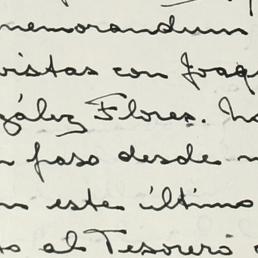 memorandum
vistas con Joaq
zález Flores. No
paso desde
este último
to al Tesorero